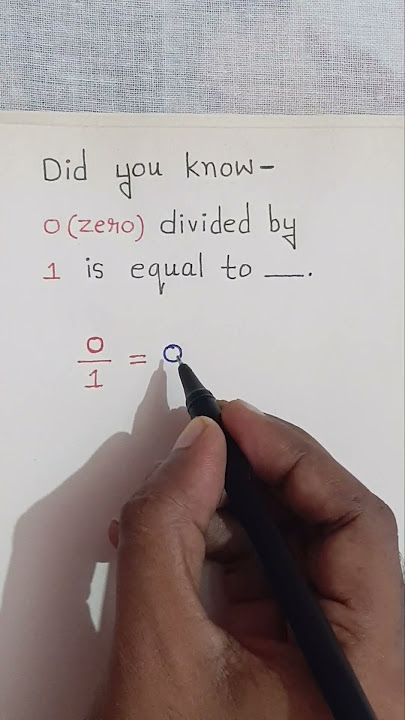 Did you know-
0 (zero) divided by
1 is equal to __.
0/1 = 0